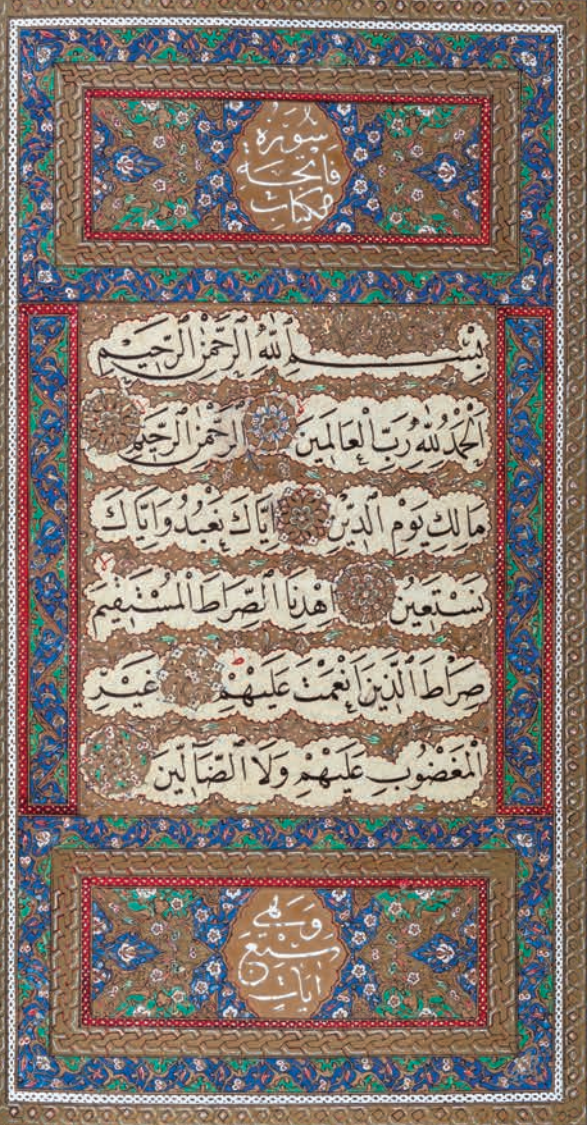 سُورَة
فَاتِحَة
كِتَاب
بِسْمِ اللّٰهِ الرَّحْمٰنِ الرَّحِيمِ
اَلْحَمْدُ لِلّٰهِ رَبِّ الْعَالَمِينَ الرَّحْمٰنِ الرَّحِيمِ
مَالِكِ يَوْمِ الدِّينِ اِيَّاكَ نَعْبُدُ وَاِيَّاكَ
نَسْتَعِينُ اِهْدِنَا الصِّرَاطَ الْمُسْتَقِيمَ
صِرَاطَ الَّذِينَ اَنْعَمْتَ عَلَيْهِمْ غَيْرِ
الْمَغْضُوبِ عَلَيْهِمْ وَلَا الضَّآلِّينَ
وَهِيَ
سَبْعَ
اٰيَات